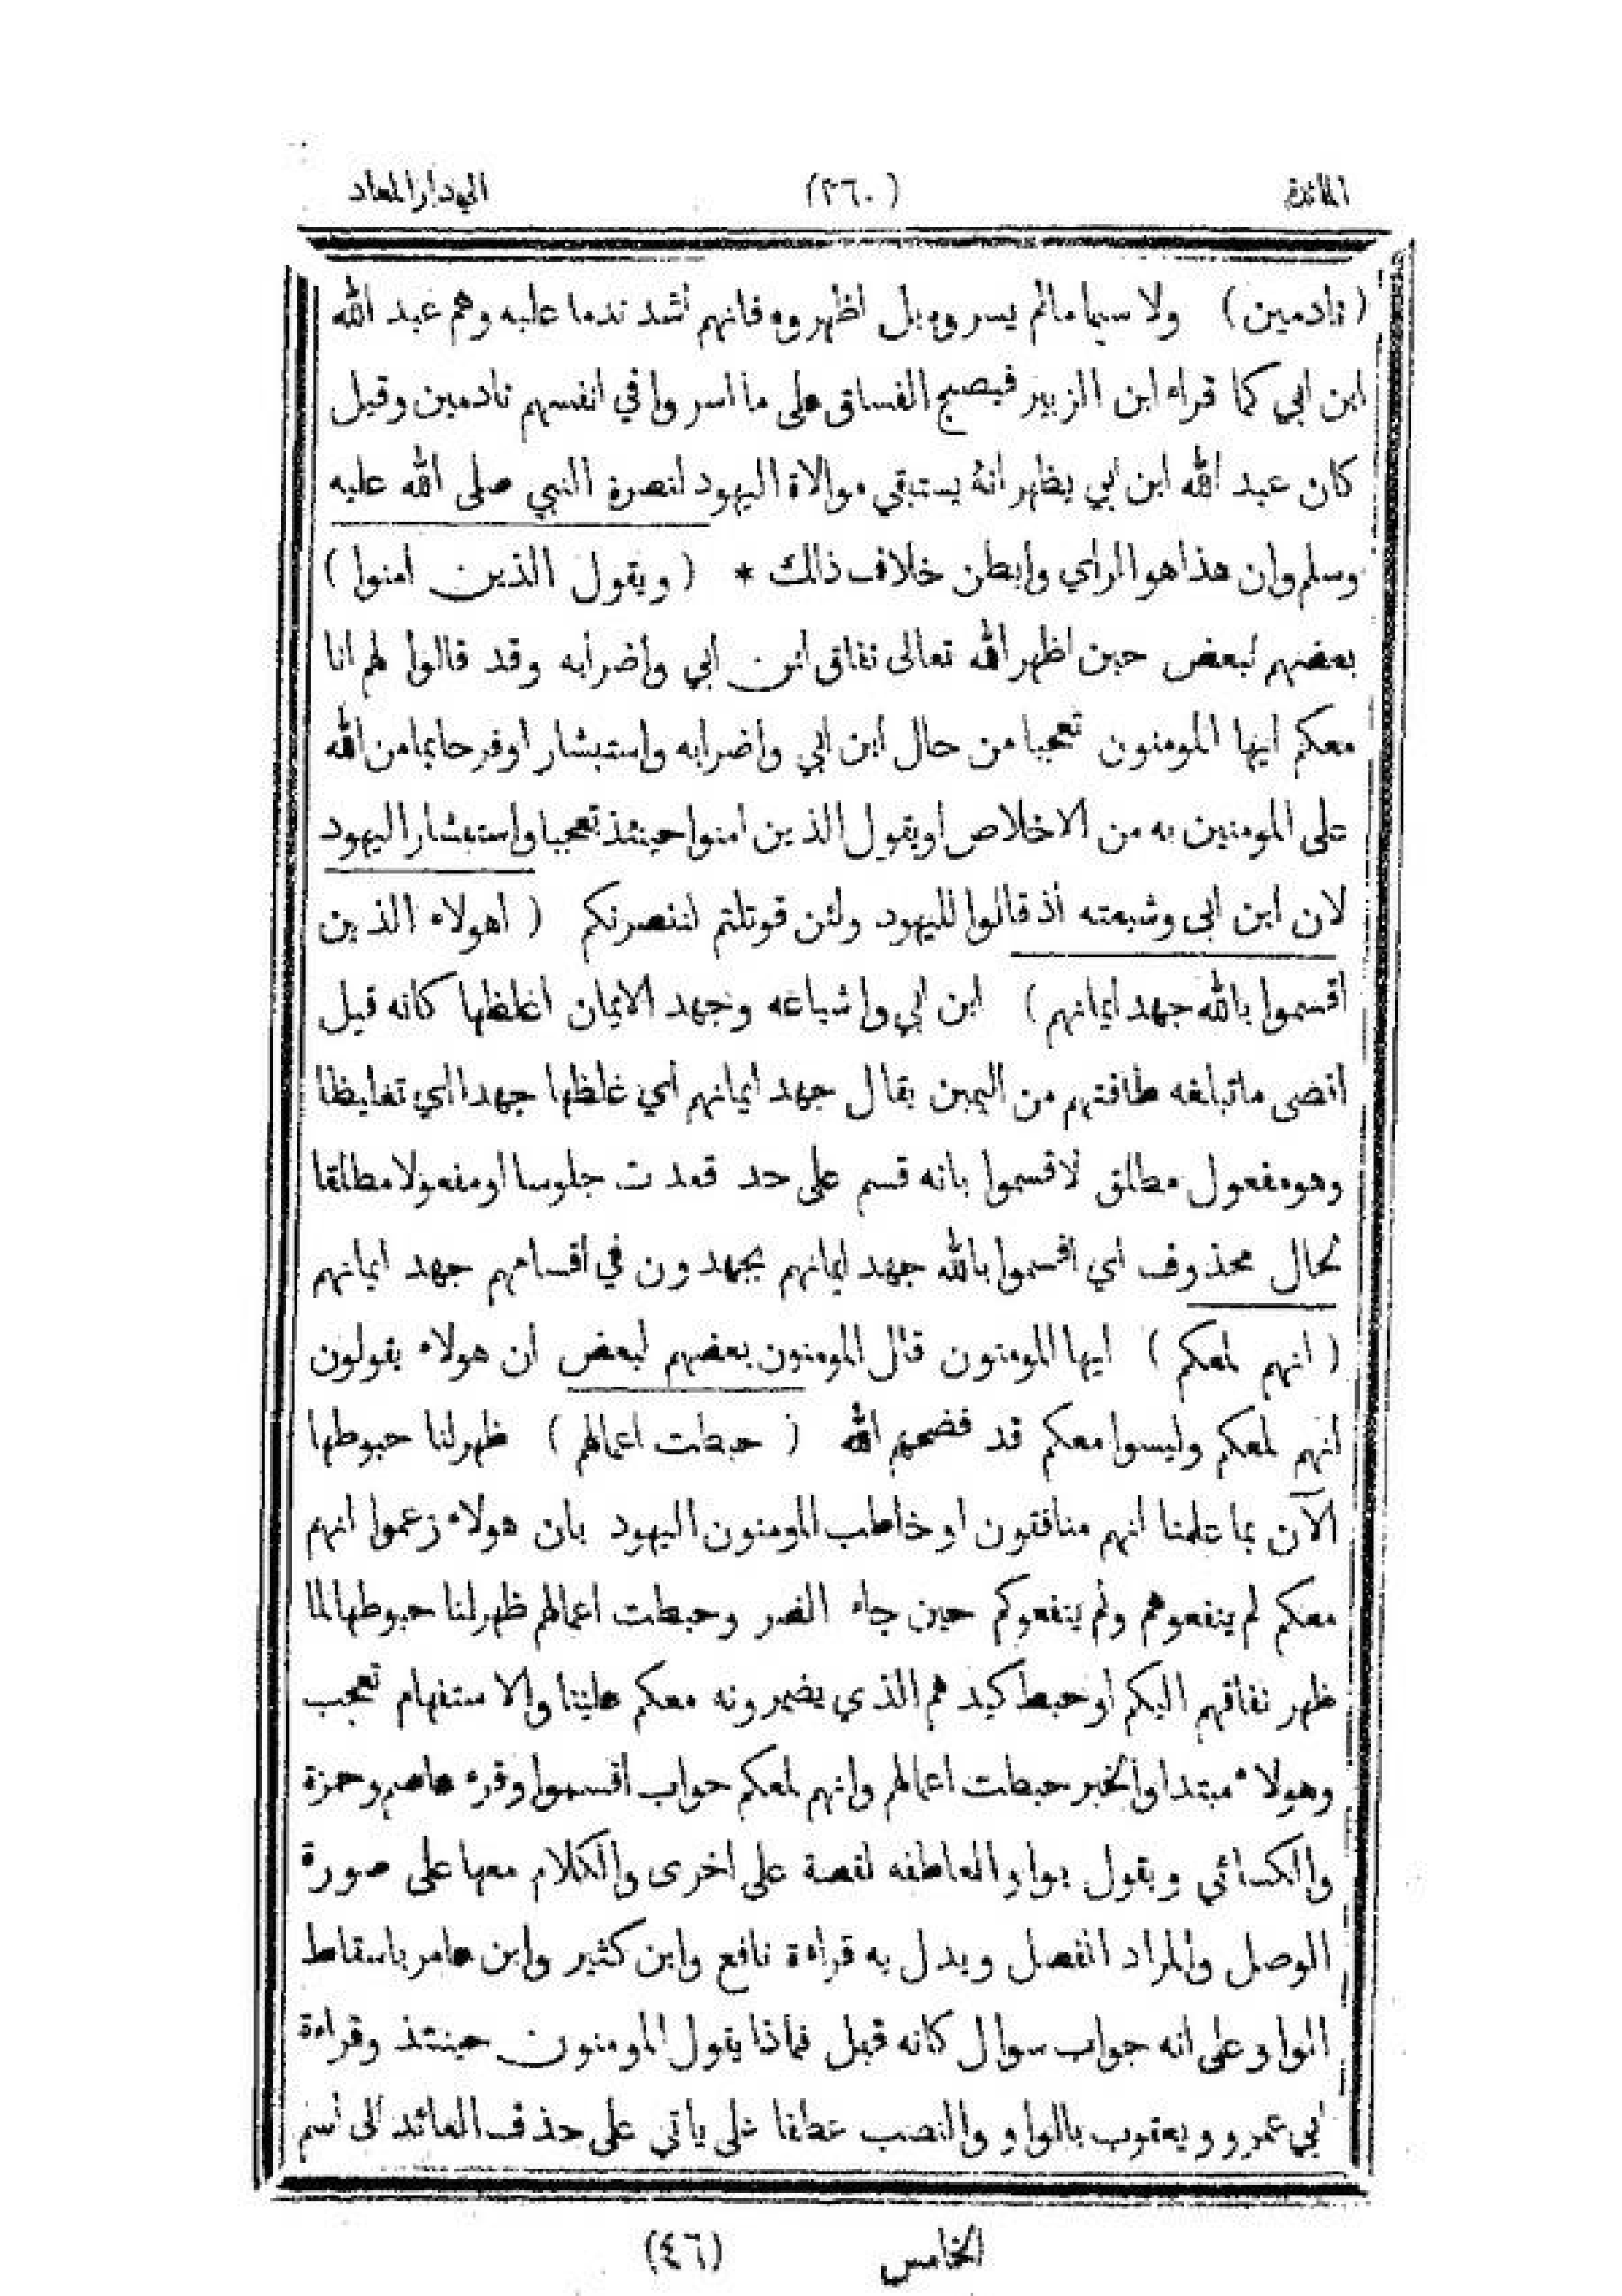 المائدة (٣٦٠) اليود ارالمعاد
(نادمين) ولا سيما مالم يسروه بل اظهروه فانهم اشد ندما عليه وهم عبد الله
ابن ابي كما قراء ابن الزبير فيصبح الفساق على ما اسروا في انفسهم نادمين وقيل
كان عبد الله ابن ابي يظهر انه يستبقي موالاة اليهود لنصرة النبي صلى الله عليه
وسلم وان هذا هو الراي وابطن خلاف ذالك * (ويقول الذين امنوا)
بعضهم لبعض حين اظهر الله تعالى نفاق ابن ابي واضرابه وقد قالوا لهم انا
معكم ايها المومنون تعجبا من حال ابن ابي واضرابه واستبشار اوفرحا بما من الله
على المومنين به من الاخلاص او يقول الذين امنوا حينئذ تعجبا واستبشار اليهود
لان ابن ابى وشيعته اذ قالوا لليهود ولئن قوتلتم لننصرنكم (اهولاء الذين
اقسموا بالله جهد ايمانهم) ابن ابي واشباعه وجهد الايمان اغلظها كانه قيل
اقصى ماتبلغه طاقتهم من اليمين يقال جهد ايمانهم اي غلظها جهدا اي تغليظا
وهو مفعول مطلق لاقسموا بانه قسم على حد قعدت جلوسا او مفعولا مطلقا
لحال محذوف اي اقسموا بالله جهد ايمانهم يجهدون في اقسامهم جهد ايمانهم
(انهم لمعكم) ايها المومنون قال المومنون بعضهم لبعض ان هولاء يقولون
انهم لمعكم وليسوا معكم قد فضحهم الله (حبطت اعمالهم) ظهر لنا حبوطها
الآن بما علمنا انهم منافقون او خاطب المومنون اليهود بان هولاء زعموا انهم
معكم لم ينفعوهم ولم ينفعوكم حين جاء الضر وحبطت اعمالهم ظهر لنا حبوطها لما
ظهر نفاقهم اليكم او حبط كيدهم الذي يضمرونه معكم علينا والاستفهام تعجب
وهولاء مبتدا والخبر حبطت اعمالهم وانهم لمعكم جواب اقسموا وقرء عاصم وحمزة
والكسائي ويقول بواو العاطفه لقصة على اخرى والكلام معها على صورة
الوصل والمراد الفصل ويدل به قراءة نافع وابن كثير وابن عامر باسقاط
الواو على انه جواب سوال كانه قيل فماذا يقول المومنون حينئذ وقراءة
ابي عمرو ويعقوب بالواو والنصب عطفا على ياتي على حذف العائد الى اسم
الخامس (٤٦)